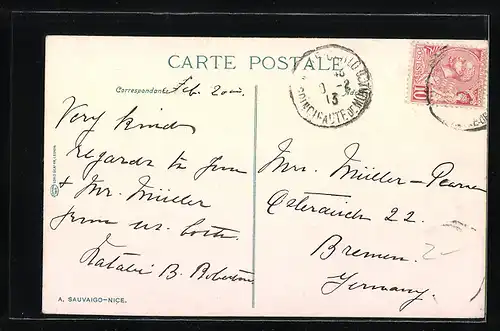 CARTE POSTALE
Correspondance
Feb. 2nd.
Very kind
regards to you
+ Mr. Müller
from us both.
Natalie B. Robertson
Mrs. Müller-Pearse
Osterdeich 22.
Bremen.
Germany.
A. SAUVAIGO-NICE.
PRINCIPAUTÉ DE MONACO
13
10